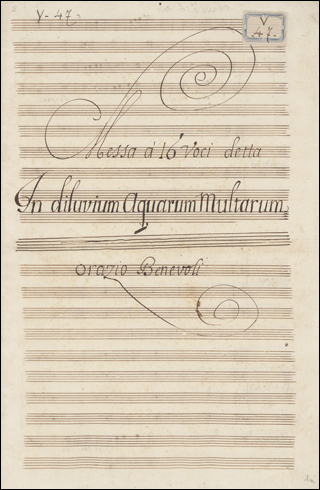 V-47
V
47.
Messa à 16 Voci detta
In diluvium Aquarum Multarum
Orazio Benevoli